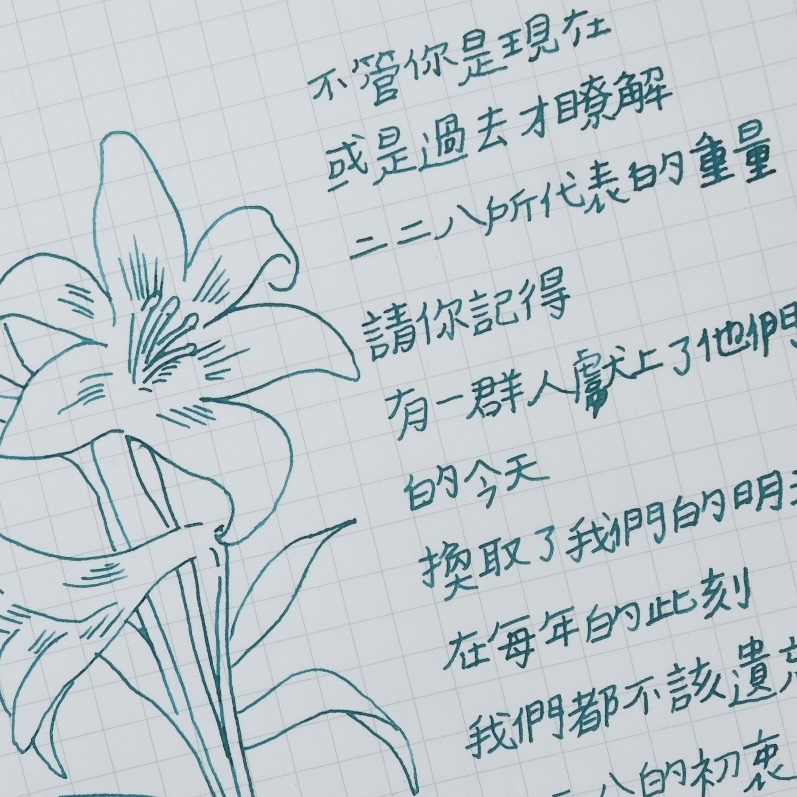 不管你是現在
或是過去才瞭解
二二八所代表的重量
請你記得
有一群人獻上了他們
的今天
換取了我們的明天
在每年的此刻
我們都不該遺忘
二八的初衷